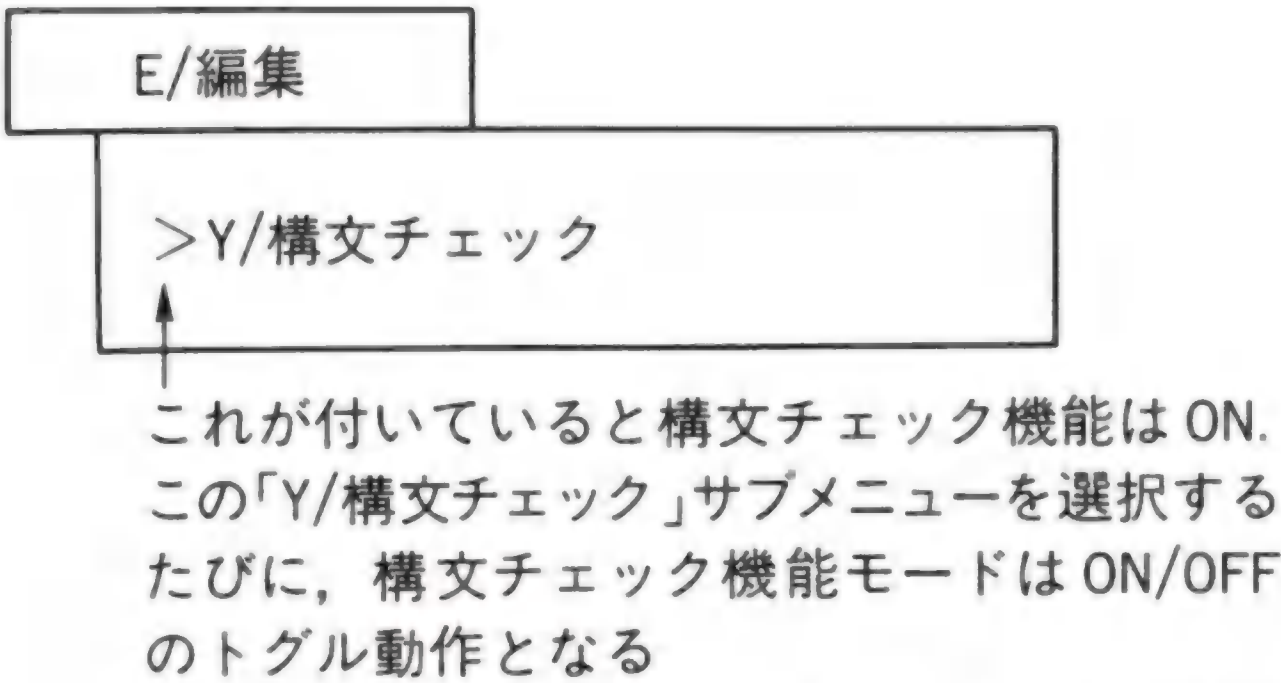 E/編集
>Y/構文チェック
これが付いていると構文チェック機能は ON.
この「Y/構文チェック」サブメニューを選択する
たびに, 構文チェック機能モードは ON/OFF
のトグル動作となる